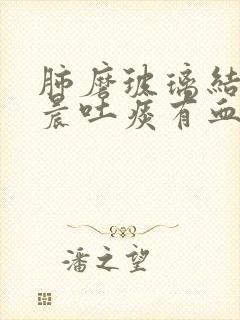 肺磨玻璃結
晨吐痰有血
潘之望